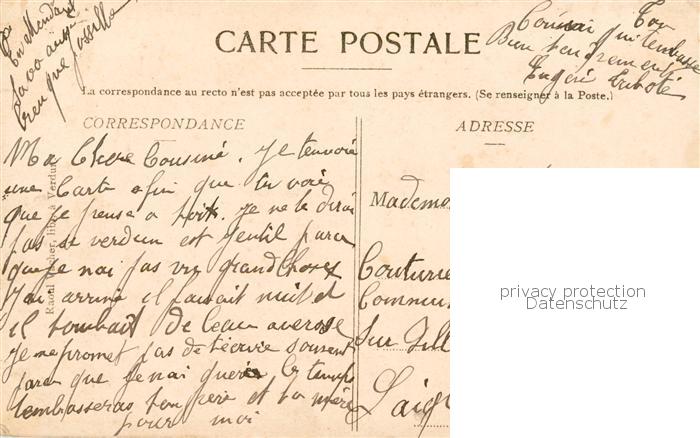 En attendant
CARTE POSTALE
La correspondance au recto n'est pas acceptée par tous les pays étrangers. (Se renseigner à la Poste.)
CORRESPONDANCE
Ma Chere Cousine. Je tenvoie
une Carte afin que tu voie
que je pense a toit. je ne te dirai
pas si verdun est gentil parce
que je nai pas vu grand Chose
Jai arrivé il faisait nuit et
il tombait de leau averse
je ne promet pas de técrire souvent
parce que je nai guere le temps
tembasseras ton pere et ta mère
pour moi
Raoul libr. à Verdun
Ton
Cousin qui tembrasse
Bien tendrement
Eugène
ADRESSE
Mademo
Couturie
Commun
Sur Till
Laig
privacy protection
Datenschutz